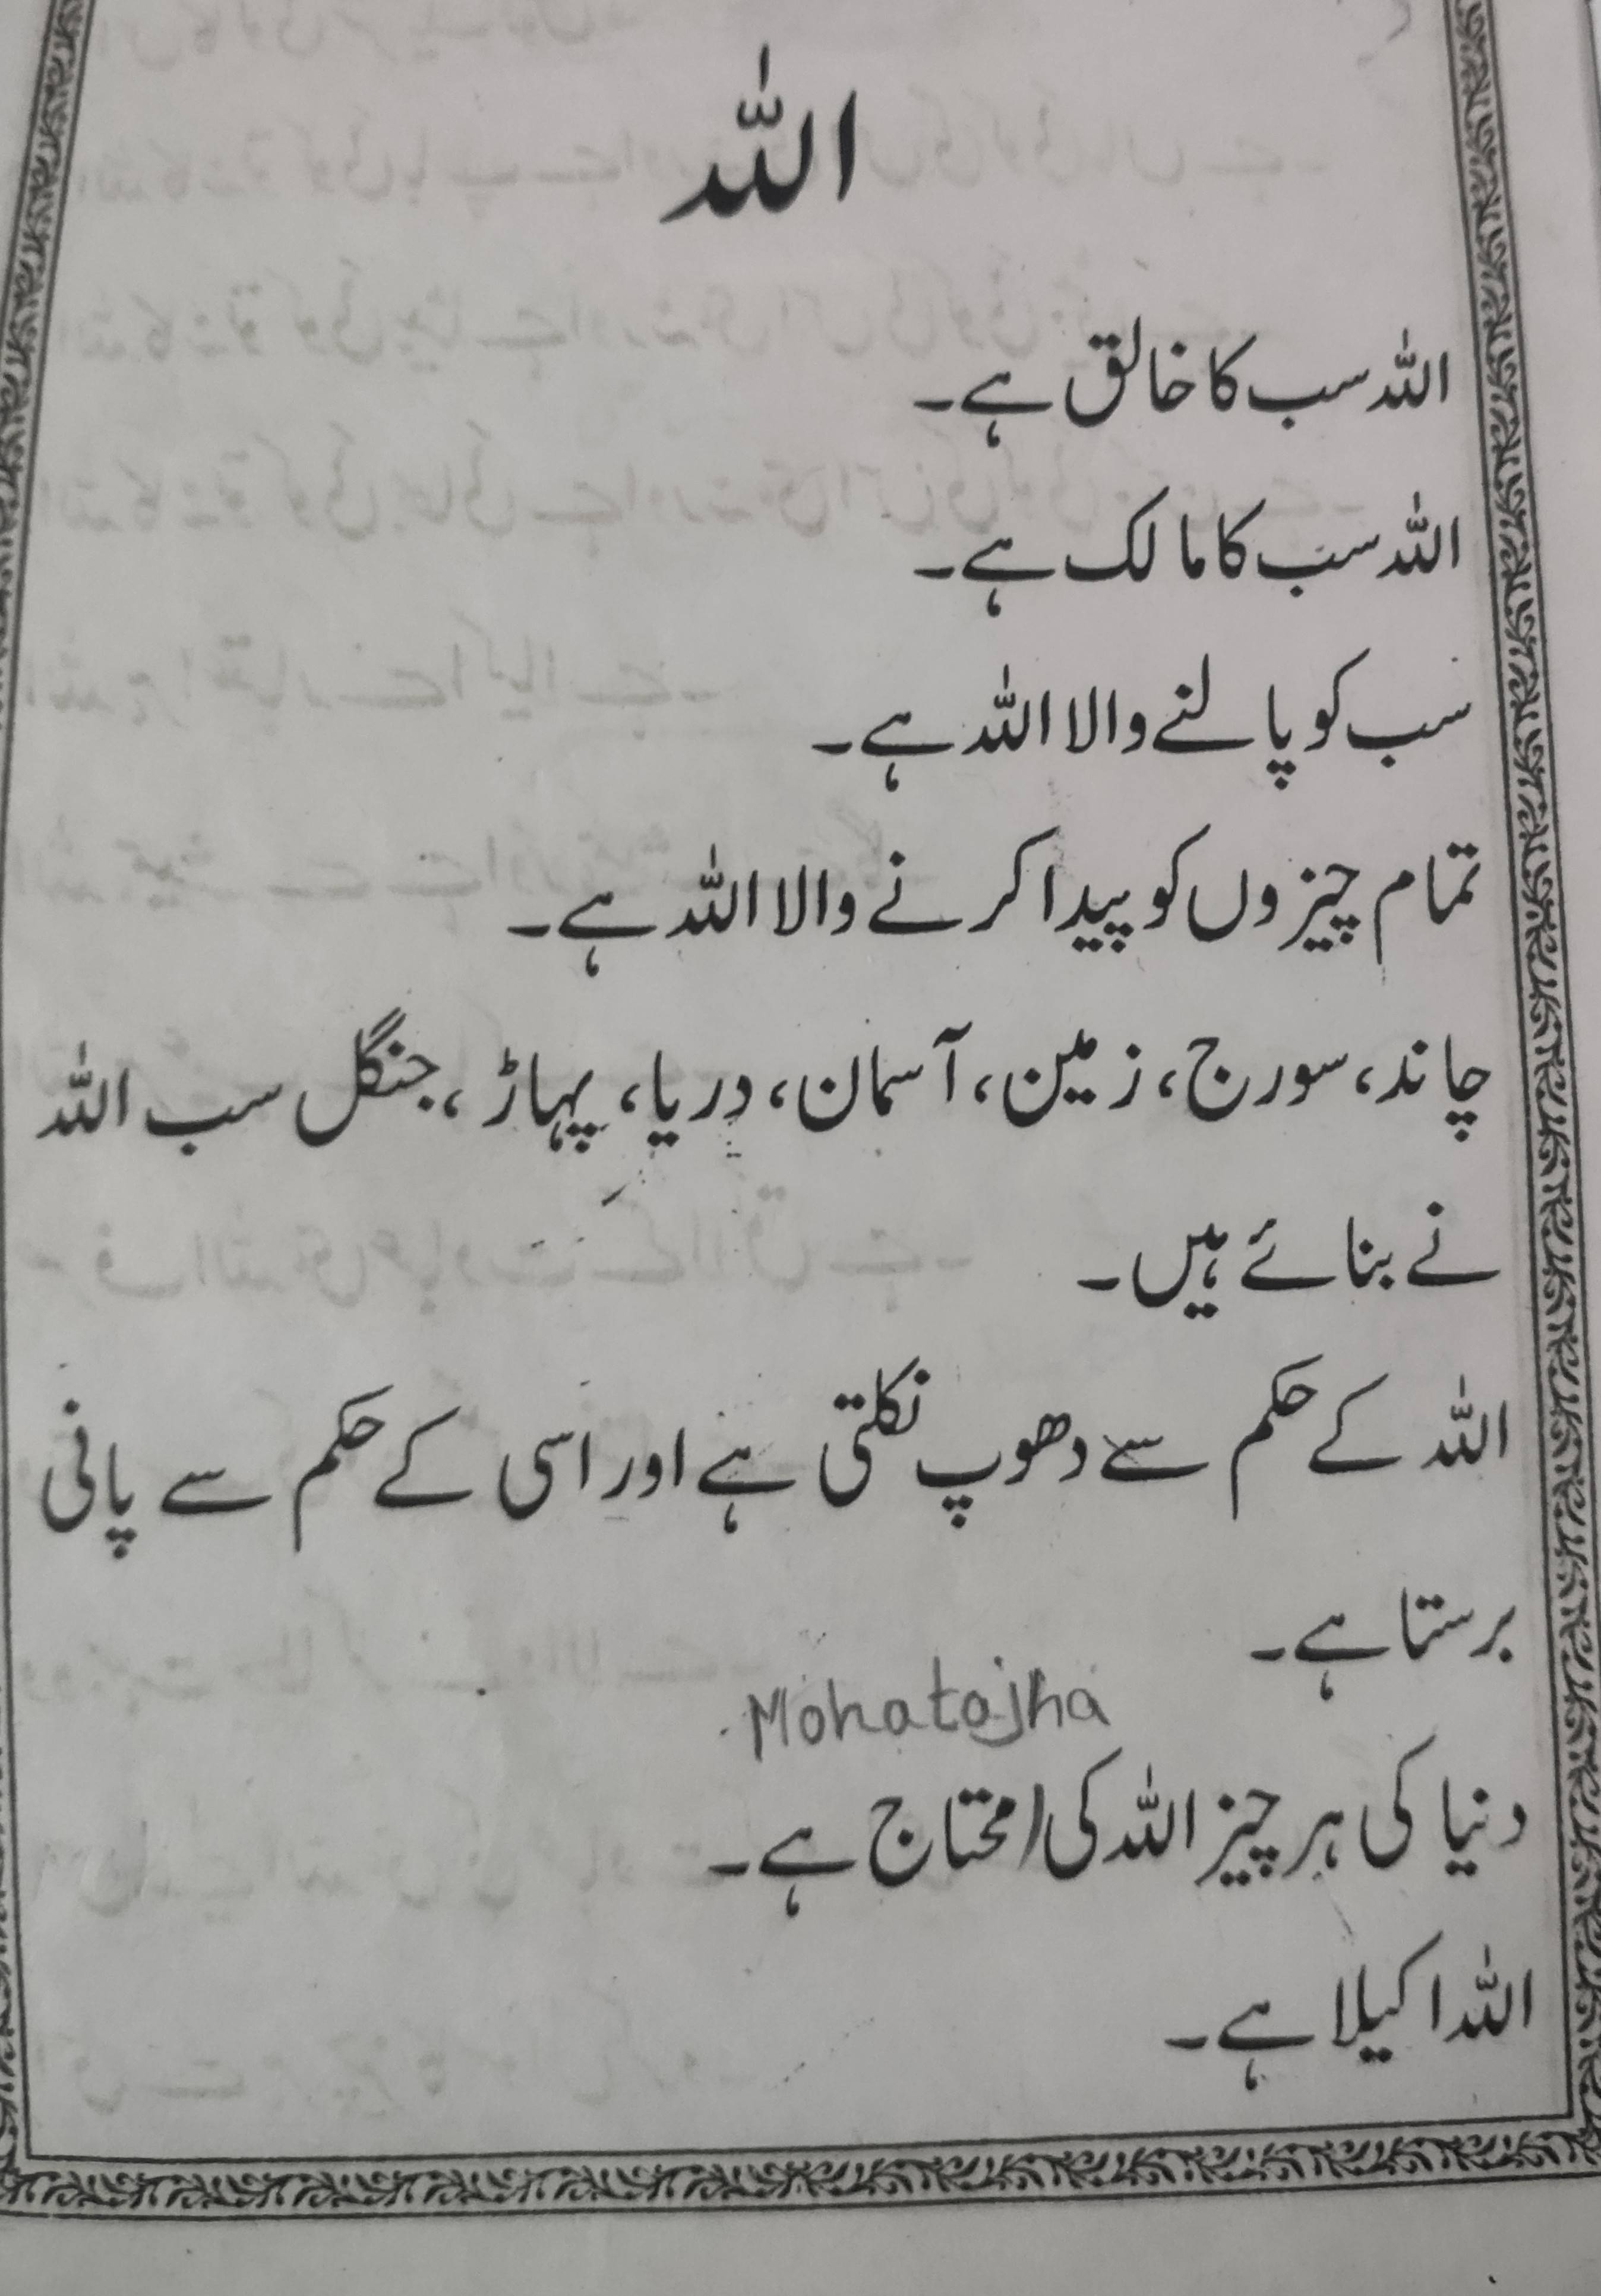 اللہ
اللہ سب کا خالق ہے۔
اللہ سب کا مالک ہے۔
سب کو پالنے والا اللہ ہے۔
تمام چیزوں کو پیدا کرنے والا اللہ ہے۔
چاند، سورج، زمین، آسمان، دریا، پہاڑ، جنگل سب اللہ
نے بنائے ہیں۔
اللہ کے حکم سے دھوپ نکلتی ہے اور اسی کے حکم سے پانی
برستا ہے۔
Mohatajha
دنیا کی ہر چیز اللہ کی محتاج ہے۔
اللہ اکیلا ہے۔